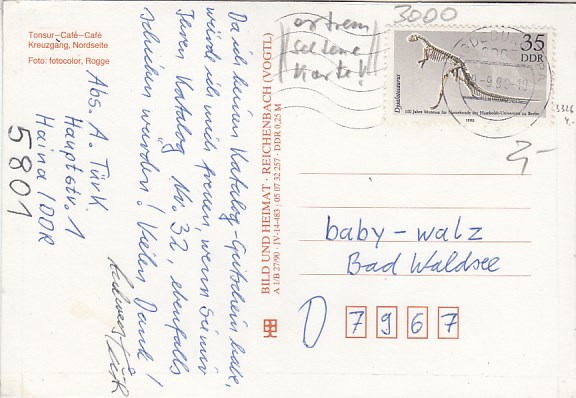 Tonsur-Café-Café
Kreuzgang, Nordseite
Foto: fotocolor, Rogge
Abs. A. Türk
Hauptstr. 1
Haina/DDR
5801
Da ich keinen Katalog-Gutschein habe,
würde ich mich freuen, wenn Sie mir
Ihren Katalog No. 32, ebenfalls
schicken würden! Vielen Dank!
Türk
BILD UND HEIMAT · REICHENBACH (VOGTL)
A 1/B 27/90 · IV-14-483 · 05 07 32 257 · DDR 0,25 M
extrem
seltene
Karte!
3000
35
DDR
Dysalotosaurus
100 Jahre Museum für Naturkunde der Humboldt-Universität zu Berlin
1990
-9.90-19
2,-
baby-walz
Bad Waldsee
D 7967